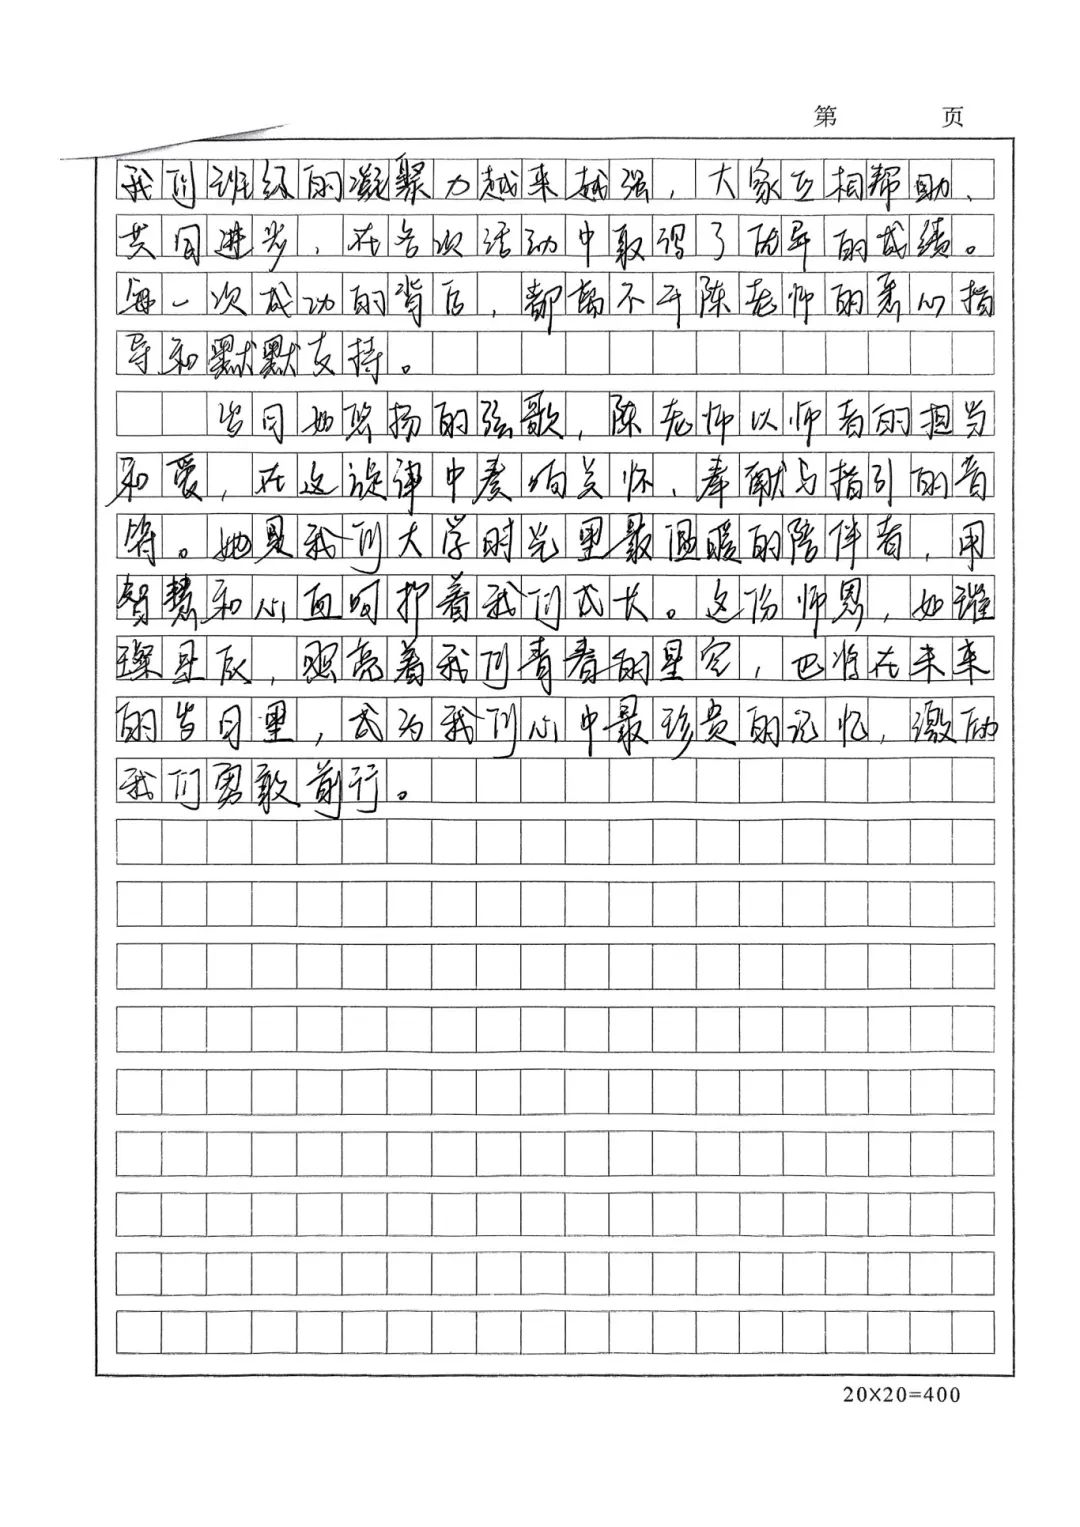 第 页
我们班级的凝聚力越来越强，大家互相帮助、
共同进步，在各次活动中取得了优异的成绩。
每一次成功的背后，都离不开陈老师的悉心指
导和默默支持。
岁月如悠扬的弦歌，陈老师以师者的担当
和爱，在这旋律中奏响关怀、奉献与指引的音
符。她是我们大学时光里最温暖的陪伴者，用
智慧和心血呵护着我们成长。这份师恩，如璀
璨星辰，照亮着我们青春的星空，也将在未来
的岁月里，成为我们心中最珍贵的记忆，激励
我们勇敢前行。
20×20=400